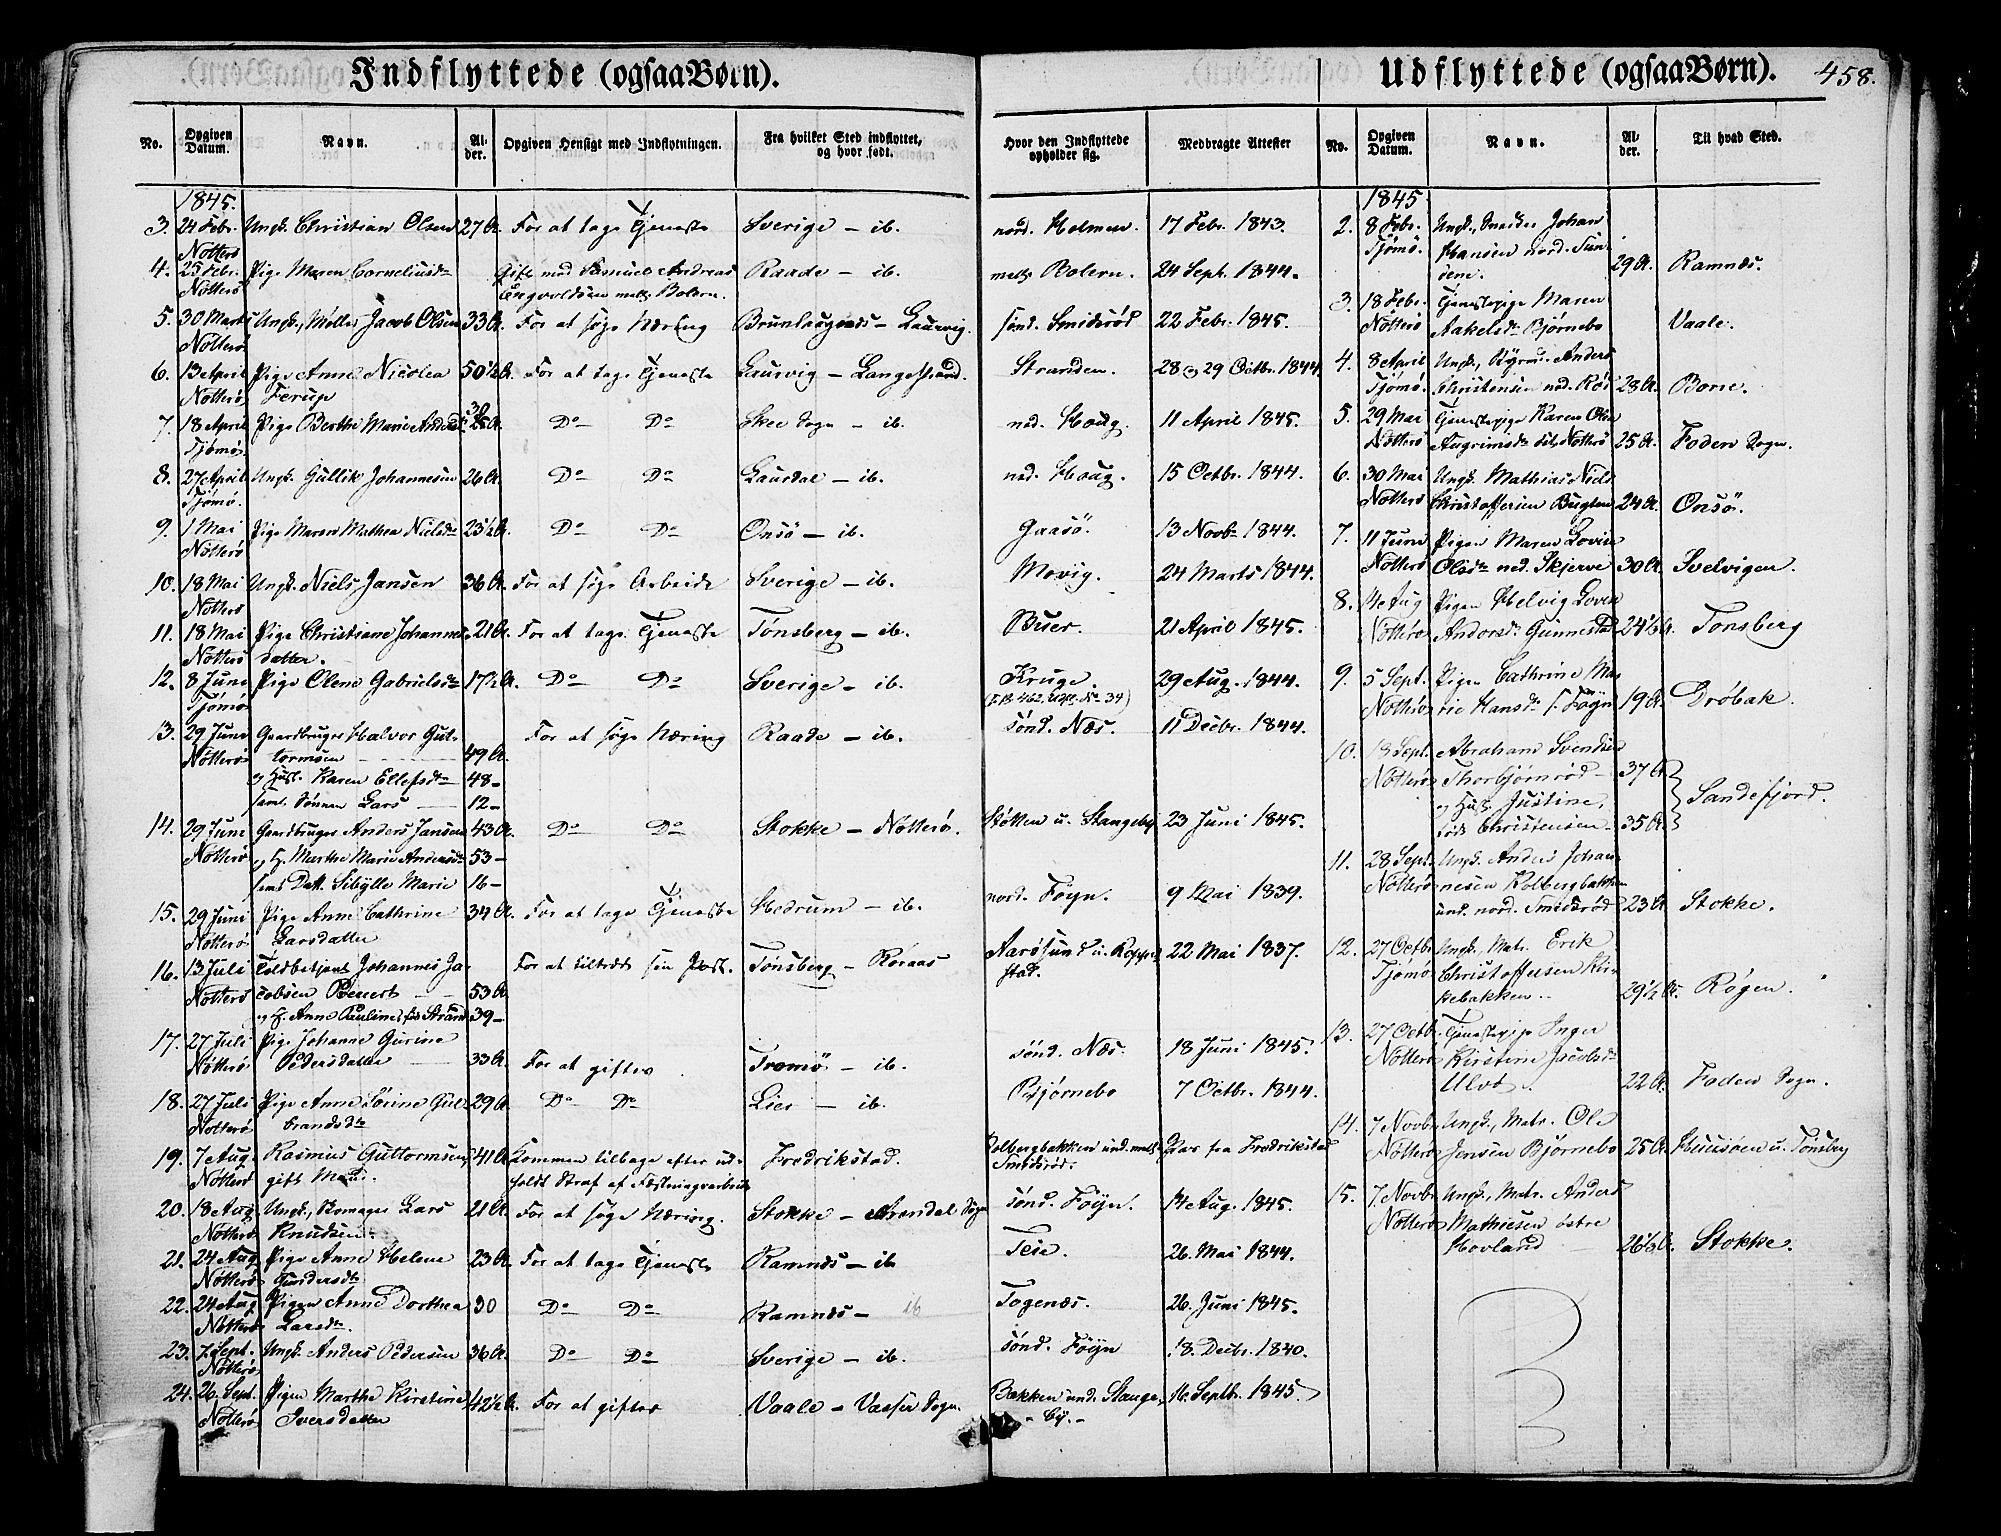 Indflyttede (ogsaa Børn).
No. Opgiven Datum. Navn. Alder. Opgiven Hensigt med Indflytningen. Fra hvilket Sted indflyttet, og hvor født. Hvor den Indflyttede opholder sig. Medbragte Attester
1845.
3. 24 Febr. Nötterö Ungk. Christian Olsen 27 A. For at tage Tjeneste Sverige – ib. nord. Holmen. 17 Febr. 1843.
4. 25 Febr. Nötterö Pige Maren Corneliusdr Gift med Samuel Andreas Engvoldsen mels. Bolern. Raade – ib. mels. Bolern. 24 Sept. 1844.
5. 30 Marts Nötterö Ungk., Møller Jacob Olsen 33 A. For at søge Næring Brunlaugnæs – Laurvig. sönd. Smidsrød 22 Febr. 1845.
6. 13 April Nötterö Pige Anne Nicolea Ferup 50½ A. For at tage Tjeneste Laurvig – Langesund. Stranden. 28 og 29 Octbr. 1844.
7. 18 April Tjømø. Pige Berthe Marie Andersdr Do Do Skee Sogn – ib. ned. Houg. 11 April 1845.
8. 27 April Tjømø. Ungk. Gullik Johannesen 26 A. Do Do Laurdal – ib. ned. Houg. 15 Octbr. 1844.
9. 1 Mai Nötterö Pige Maren Mathea Nielsdr 23½ A. Do Do Onsö – ib. Gaasö. 13 Novbr 1844.
10. 18 Mai Nötterö Ungk. Niels Jansen 36 A. For at søge Arbeide Sverige – ib. Movig. 24 Marts 1844.
11. 18 Mai Nötterö Pige Christiane Johannesdatter. 21 A. For at tage Tjeneste Tønsberg – ib. Buer. 21 April 1845.
12. 8 Juni Tjømø Pige Olene Gabrielsdr 17½ A. Do Do Sverige – ib. Kruge. 29 Aug. 1844.
13. 29 Juni Nötterö Gaardbruger Halvor Guttormsen 49 A. For at søge Næring Raade – ib. sönd. Næs. 11 Decbr. 1844.
og Hust. Karen Ellefsdr 48 –
samt Sønnen Lars 12 –
14. 29 Juni Nötterö Gaardbruger Anders Jansen 43 A. Do Do Stokke – Nötterö. Støtten u. Stangeby 23 Juni 1845.
og H. Marthe Marie Andersdr 53 –
samt Datt. Sibylle Marie 16 –
15. 29 Juni Nötterö Pige Anne Cathrine Larsdatter 34 A. For at tage Tjeneste Hedrum – ib. nord. Føyn. 9 Mai 1839.
16. 13 Juli Nötterö Toldbetjent Johannes Jacobsen 53 A. For at tiltræde sin Post. Tønsberg – Røraas Aarøsund u. 22 Mai 1837.
og H. Anne Pauline f. Strand 39 –
17. 27 Juli Nötterö Pige Johanne Gurine Pedersdatter 33 A. For at giftes Tromö – ib. sönd. Næs. 18 Juni 1845.
18. 27 Juli Nötterö Pige Anne Sörine Gulbrandsdr 29 A. Do Do Lier – ib. Bjørnebo 7 Octbr. 1844.
19. 7 Aug. Nötterö Rasmus Guttormsen, gift Mand. 41 A. Kommen tilbage efter udholdt Straf af Fæstningsarbeide Fredrikstad. Kolbergbakken und. mels. Smidsrød. Pas fra Fredrikstad
20. 18 Aug. Nötterö Ungk., Lars Knudsen. 21 A. For at søge Næring. Stokke – Arendal Sogn sönd. Føyn. 14 Aug. 1845.
21. 24 Aug. Nötterö Pige Anne Helene Gundersdr 23 A. For at tage Tjeneste Ramnæs – ib Teie. 26. Mai 1844.
22. 24 Aug. Nötterö Pigen Anne Dorthea Larsdr. 30 Do Do Ramnæs – ib Togenæs. 26. Juni 1845.
23. 7. Sept. Nötterö Ungk. Anders Pedersen 36 A. Do Do Sverige – ib. sönd. Føyn 18. Decbr. 1840.
24. 26. Sept. Nötterö Pigen Marthe Kirstine Iversdatter 42½ A. For at giftes Vaale – Vasser Sogn. Bakken und. Stangeby. 16 Septbr. 1845
Udflyttede (ogsaa Børn). 458.
No. Opgiven Datum. Navn. Alder. Til hvad Sted.
1845
2. 8 Febr. Tjømø. Ungk., Snedker Johan Hansen nord. Sundene. 29 A. Ramnæs.
3. 18 Febr. Nötterö Tjenestepige Maren Aakelsdr Bjørnebo Vaale.
4. 8 April Tjømø. Ungk., Anders Christensen ned. Röd 28 A. Borre.
5. 29 Mai Nötterö Tjenestepige Karen Olea 25 A. Foden Sogn.
6. 30 Mai Nötterö Ungk. Mathias Niels Christoffersen Bugten 24 A. Onsö.
7. 11 Juni Nötterö Pigen Maren Lovise Olsdr ned. Skjerve 30 A. Svelvigen.
8. 14 Aug Nötterö Pigen Helvig Andersdr. Gunnestad 24½ A. Tonsberg
9. 5 Sept. Nötterö Pigen Cathrine Marie Hansdr s. Føyn 19 A. Dröbak.
10. 18 Sept. Nötterö Abraham Svendsen Thorbjørnrød 37 A. Sandefjord.
og Hust. Justine, föd Christensen 35 A.
11. 28 Sept. Nötterö Ungk. Anders Johannesen Kolbergbakken und. nord. Smidsrød 23 A. Stokke.
12. 27 Octbr. Tjømø Ungk., Matr. Erik Christoffersen Kirkebakken. 29½ A. Røgen.
13. 27 Octb. Nötterö Tjenestepige Inger Kirstine Jacobsdr Ulvö 22 A. Foden Sogn.
14. 7 Novbr. Nötterö Ungk., Matr. Ole Jensen Bjørnebo 25 A. Husøen u. Tønsberg
15. 7 Novbr. Nötterö Ungk., Matr. Anders Mathiesen østre Hovland 26½ A. Stokke.